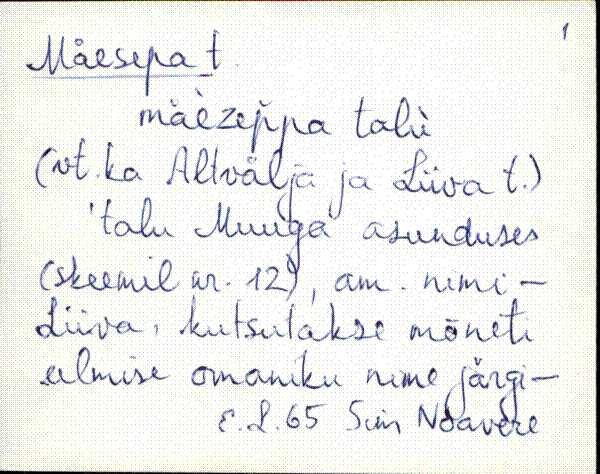 1
Mäesepa t.
mäèzep̆pa talù
(vt. ka Altvälja ja Liiva t.)
'talu Muuga asunduses
(skeemil nr. 12), am. nimi -
Liiva, kutsutakse mõneti
eelmise omaniku nime järgi -
E. L. 65 Siim Nõavere